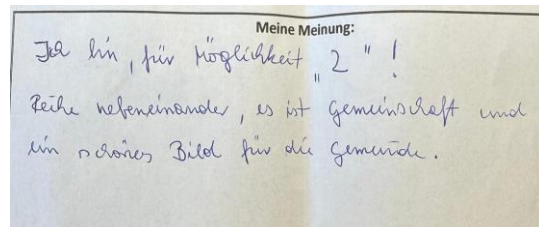 Meine Meinung:
Ich bin, für Möglichkeit „2"!
Reihe nebeneinander, es ist Gemeinschaft und
ein schönes Bild für die Gemeinde.